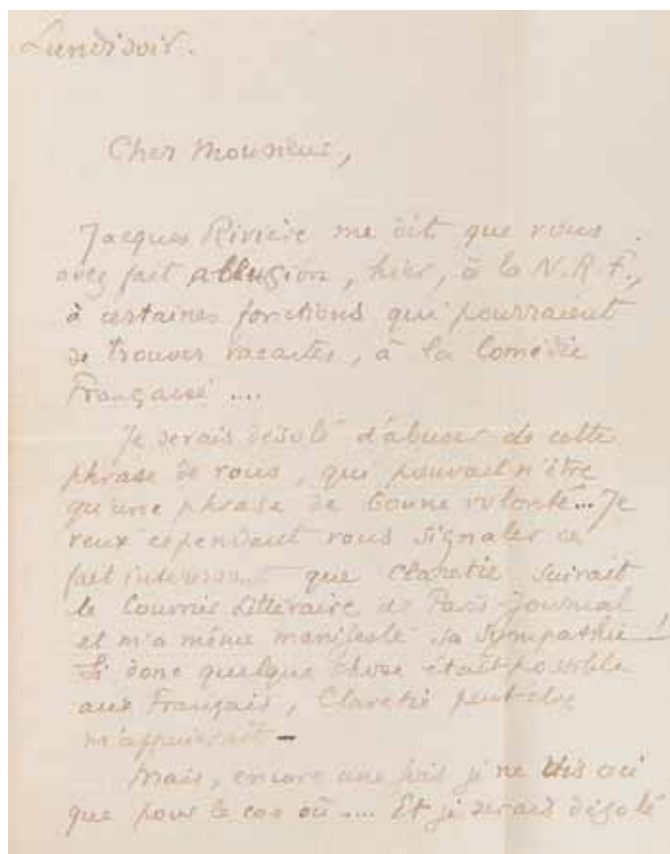 Lundi soir.
Cher Monsieur,
Jacques Rivière me dit que vous
avez fait allusion, hier, à la N.R.F.,
à certaines fonctions qui pourraient
se trouver vacantes, à la Comédie
Française ....
Je serais désolé d'abuser de cette
phrase de vous, qui pouvait n'être
qu'une phrase de bonne volonté... Je
veux cependant vous signaler ce
fait intéressant que Claretie suivait
le Courrier Littéraire de Paris-Journal
et m'a même manifesté sa sympathie !
Si donc quelque chose était possible
aux Français, Claretie peut-être
m'appuierait –
Mais, encore une fois je ne dis ceci
que pour le cas où .... Et je serais désolé